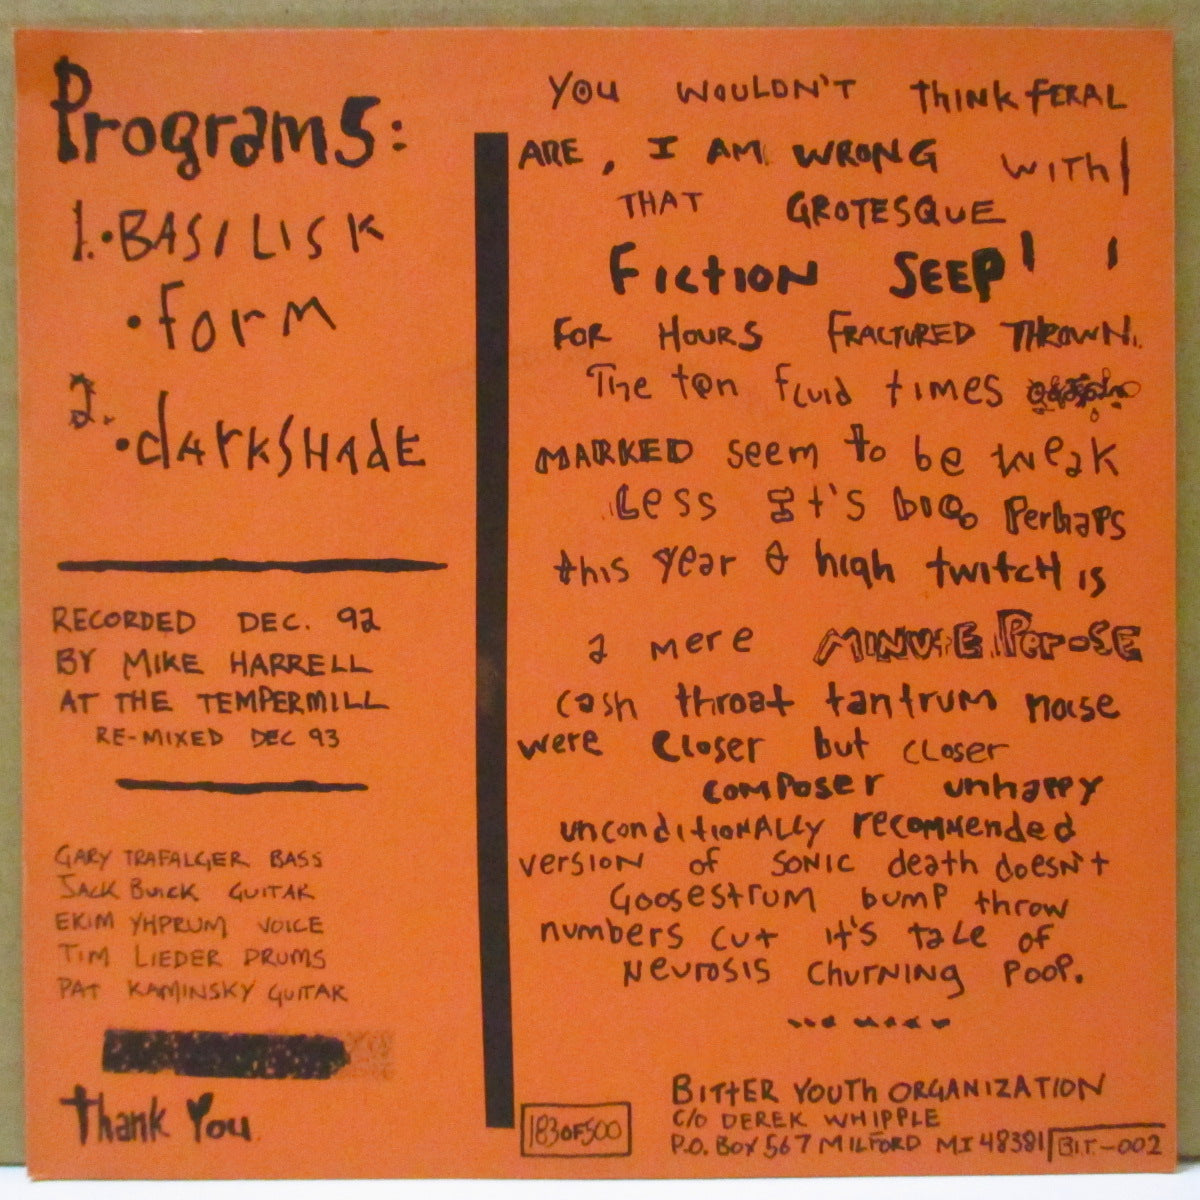 Programs:
1. • BASILISK
• form
2. • dARKSHAdE
RECORDED DEC. 92
BY MIKE HARRELL
AT THE TEMPERMILL
RE-MIXED DEC 93
GARY TRAFALGER BASS
JACK BUICK GUITAR
EKIM YHPRUM VOICE
TIM LIEDER DRUMS
PAT KAMINSKY GUITAR
Thank You
YOU WOULDN'T THINK FERAL
ARE, I AM WRONG WITH!
THAT GROTESQUE
FICTION SEEP!
FOR HOURS FRACTURED THROWN.
The ten fluid times
MARKED seem to be weak
Less It's Perhaps
this year & high twitch is
a mere MINUTE PERPOSE
cash throat tantrum noise
were closer but closer
composer unhappy
unconditiONALLY recommended
version of SONIC death doesn't
Goosestrum bump throw
numbers cut it's tale of
Neurosis churning poop.
BITTER YOUTH ORGANIZATION
C/O DEREK WHIPPLE
P.O. BOX 567 MILFORD MI 48381
183 OF 500
BIT-002